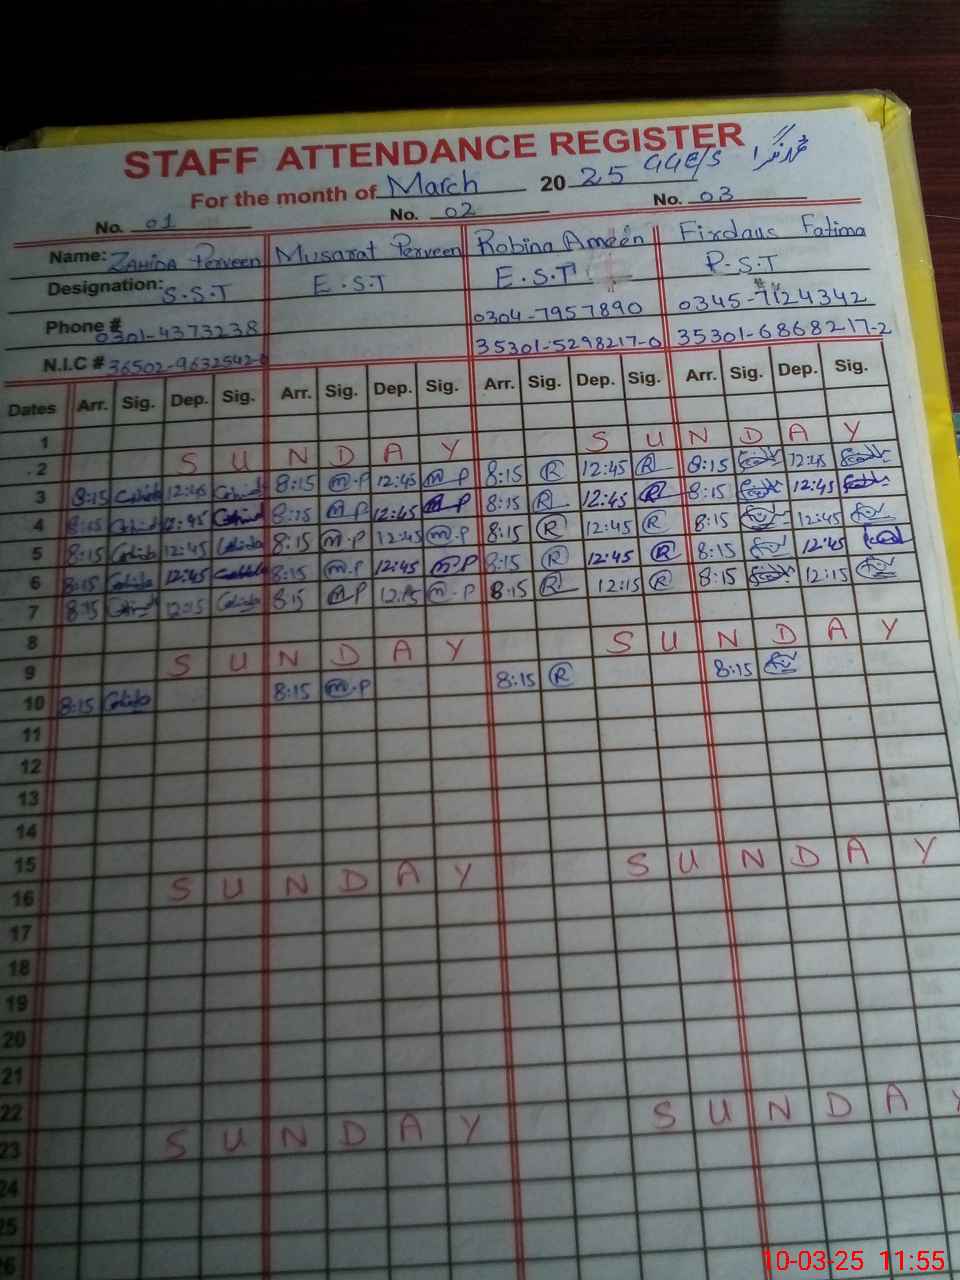 STAFF ATTENDANCE REGISTER
For the month of March 20 25 GGE/S
No. 01 No. 02 No. 03
Name: ZAHIDA Perveen Musarat Perveen Robina Ameen Firdaus Fatima
Designation: S.S.T E.S.T E.S.T P.S.T
Phone # 0301-4373238 0304-7957890 0345-7124342
N.I.C # 36502-9632542- 35301-5298217-0 35301-68682-17-2
Dates Arr. Sig. Dep. Sig. Arr. Sig. Dep. Sig. Arr. Sig. Dep. Sig. Arr. Sig. Dep. Sig.
1
2 S U N D A Y S U N D A Y
3 8:15 12:45 8:15 M.P 12:45 M.P 8:15 R 12:45 R 8:15 12:45
4 8:15 12:45 8:15 M.P 12:45 M.P 8:15 R 12:45 R 8:15 12:45
5 8:15 12:45 8:15 M.P 12:45 M.P 8:15 R 12:45 R 8:15 12:45
6 8:15 12:45 8:15 M.P 12:45 M.P 8:15 R 12:45 R 8:15 12:45
7 8:15 12:15 8:15 M.P 12:15 M.P 8:15 R 12:15 R 8:15 12:15
8
9 S U N D A Y S U N D A Y
10 8:15 8:15 M.P 8:15 R 8:15
11
12
13
14
15
16 S U N D A Y S U N D A Y
17
18
19
20
21
22
23 S U N D A Y S U N D A Y
24
25
26
10-03-25 11:55